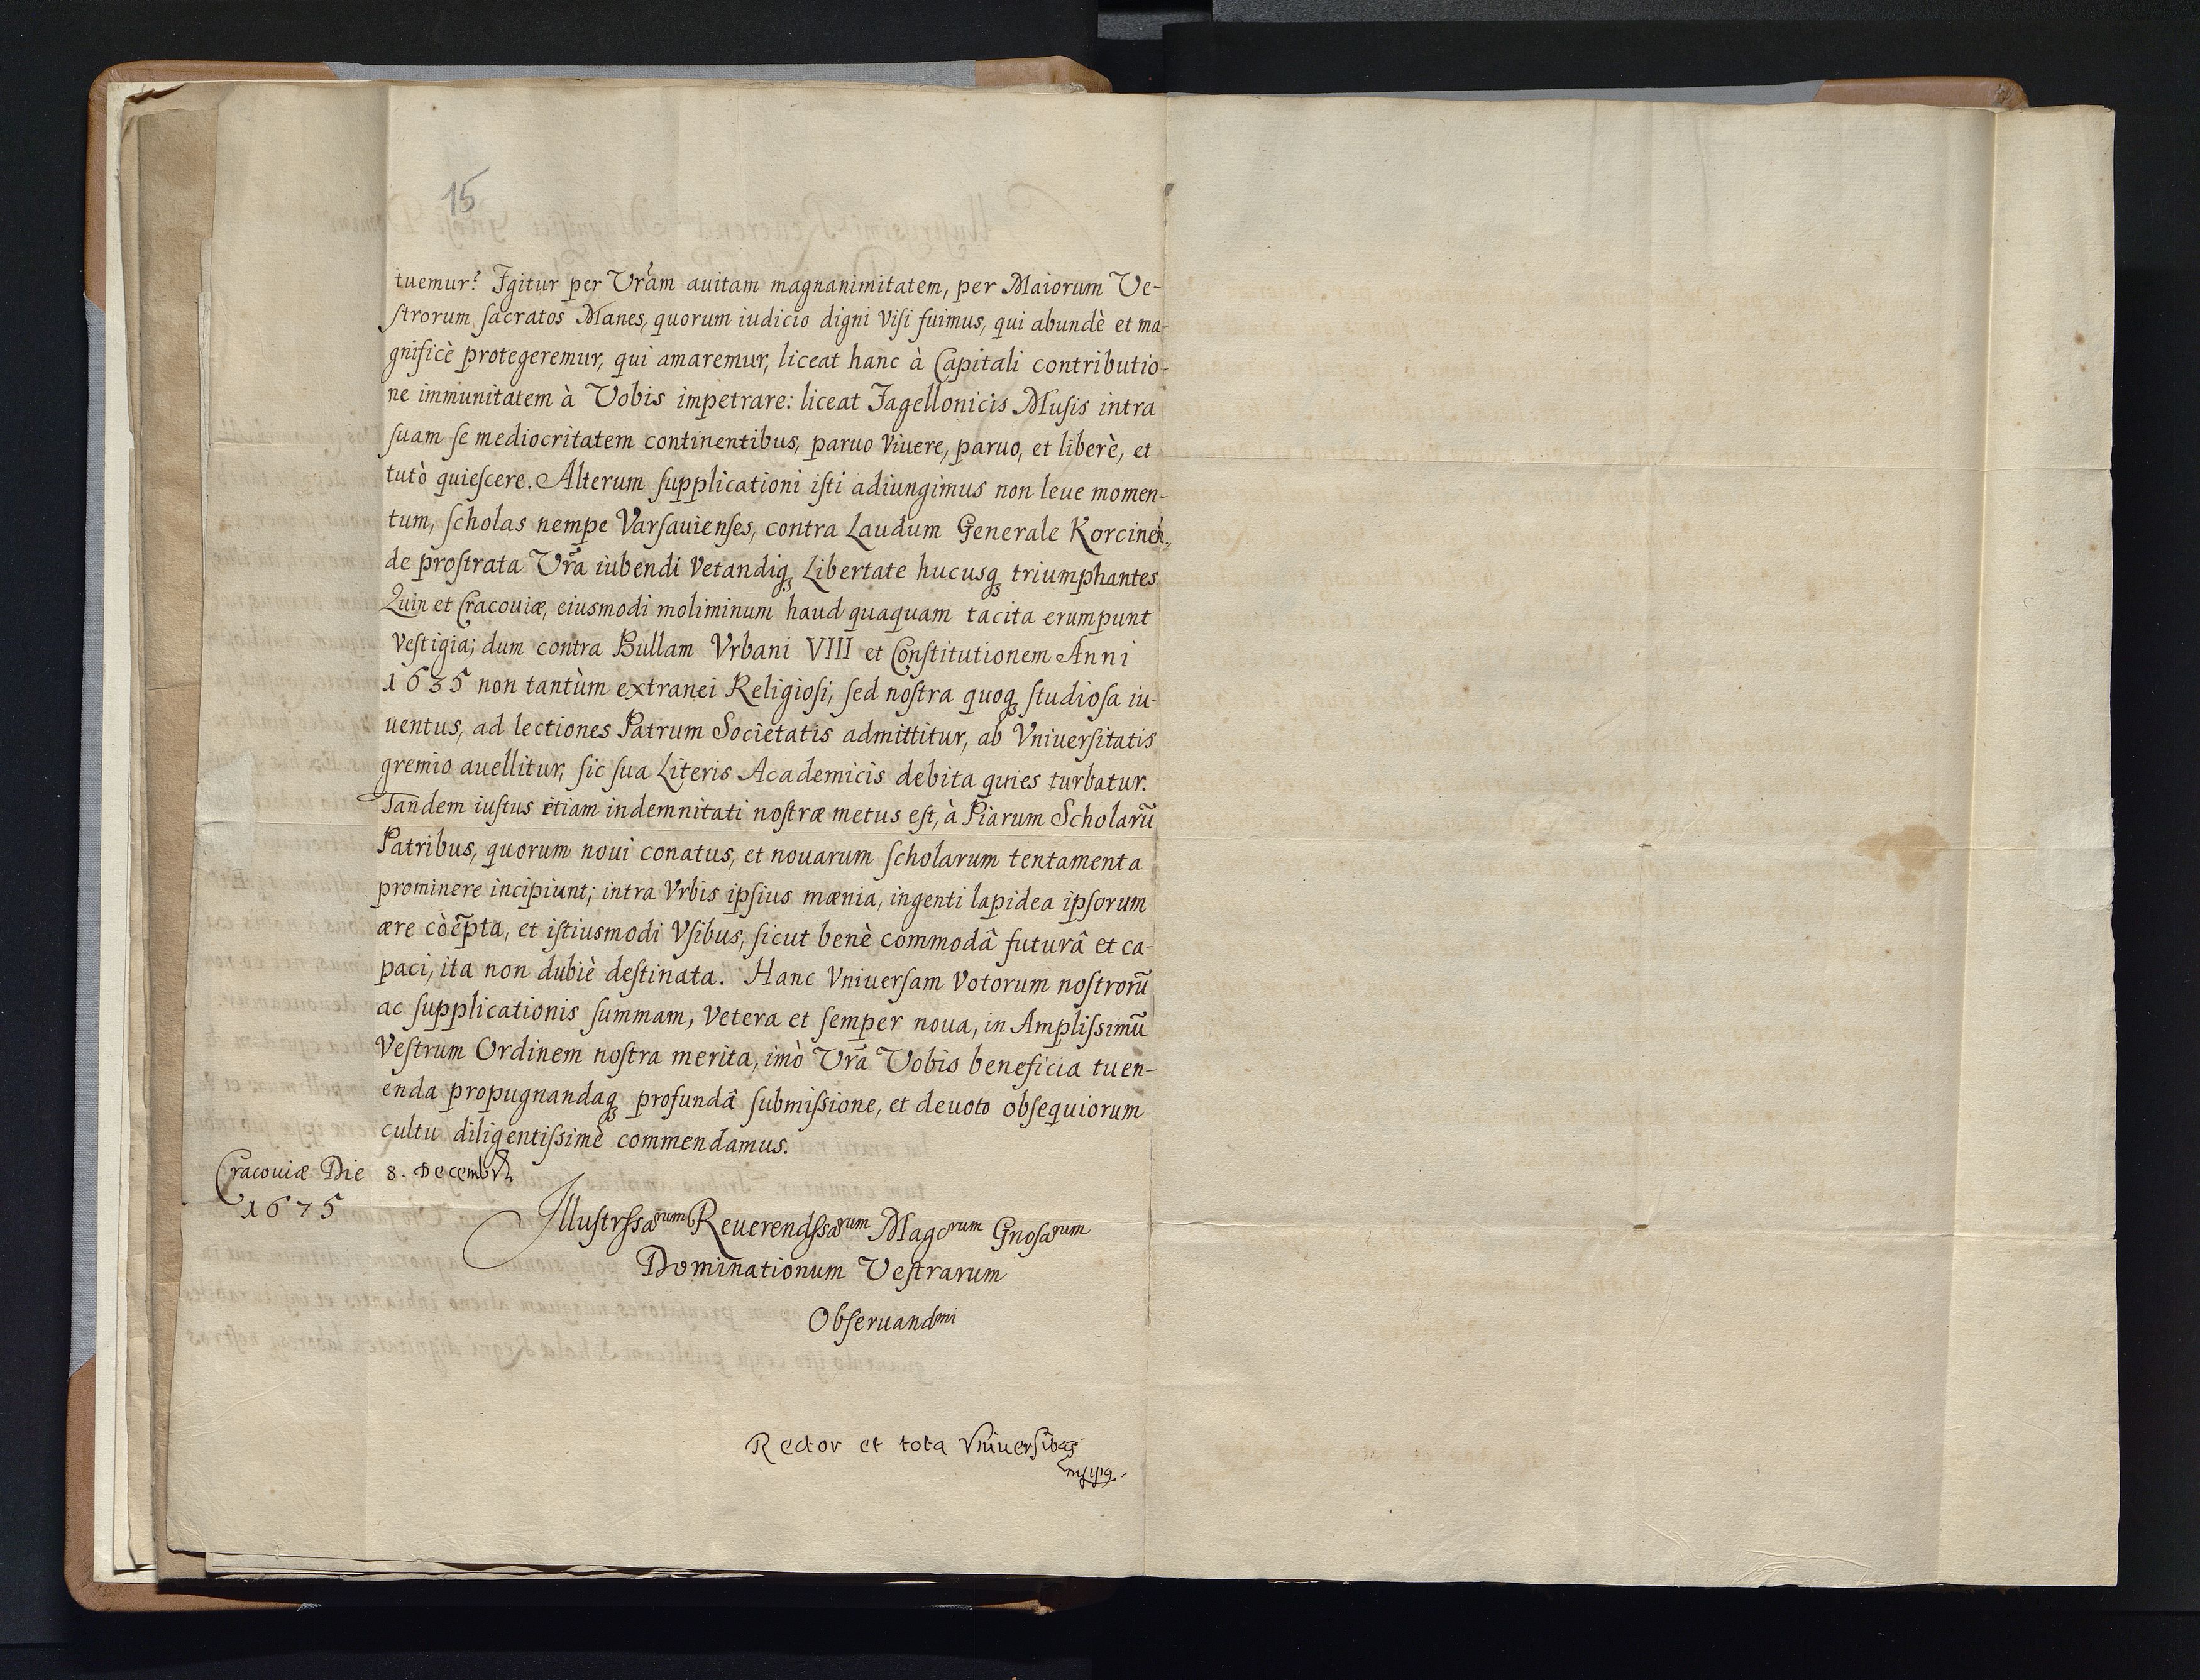 15
tuemur? Igitur per Vr̃am auitam magnanimitatem, per Maiorum Ve-
ſtrorum ſacratos Manes, quorum iudicio digni viſi fuimus, qui abundè et ma-
gnificè protegeremur, qui amaremur, liceat hanc à Capitali contributio-
ne immunitatem à Vobis impetrare: liceat Jagellonicis Muſis intra
ſuam ſe mediocritatem continentibus, paruo viuere, paruo, et liberè, et
tutò quieſcere. Alterum ſupplicationi iſti adiungimus non leue momen-
tum, ſcholas nempe Varſauienſes, contra Laudum Generale
de proſtrata Vr̃a iubendi vetandiq́ꝫ Libertate hucusq́ꝫ triumphantes.
Quin et Cracouiæ, eiusmodi moliminum haud quaquam tacita erumpunt
veſtigia; dum contra Bullam Vrbani VIII et Conſtitutionem Anni
1635 non tantùm extranei Religioſi, ſed noſtra quoqꝫ ſtudioſa iu-
uentus, ad lectiones Patrum Societatis admittitur, ab Vniuerſitatis
gremio auellitur, ſic ſua Literis Academicis debita quies turbatur.
Tandem iuſtus etiam indemnitati noſtræ metus eſt, à Piarum Scholarũ
Patribus, quorum noui conatus, et nouarum ſcholarum tentamenta
prominere incipiunt; intra Vrbis ipſius mænia, ingenti lapidea ipſorum
ære còẽpta, et iſtiusmodi Vſibus, ſicut benè commodâ futurâ et ca-
paci, ita non dubiè deſtinata. Hanc Vniuerſam Votorum noſtrorũ
ac ſupplicationis ſummam, vetera et ſemper noua, in Ampliſsimũ
Veſtrum Ordinem noſtra merita, imò Vr̃a Vobis beneficia tuen-
enda propugnandaqꝫ profundâ ſubmiſsione, et deuoto obſequiorum
cultu diligentiſsimè commendamus.
Cracouiæ Die 8. Decembr
1675
Illuſtrſsarum Reuerendſsarum Magcrum Gnoſarum
Dominationum Veſtrarum
Obſeruandmi
Rector et tota Vniuerſitas